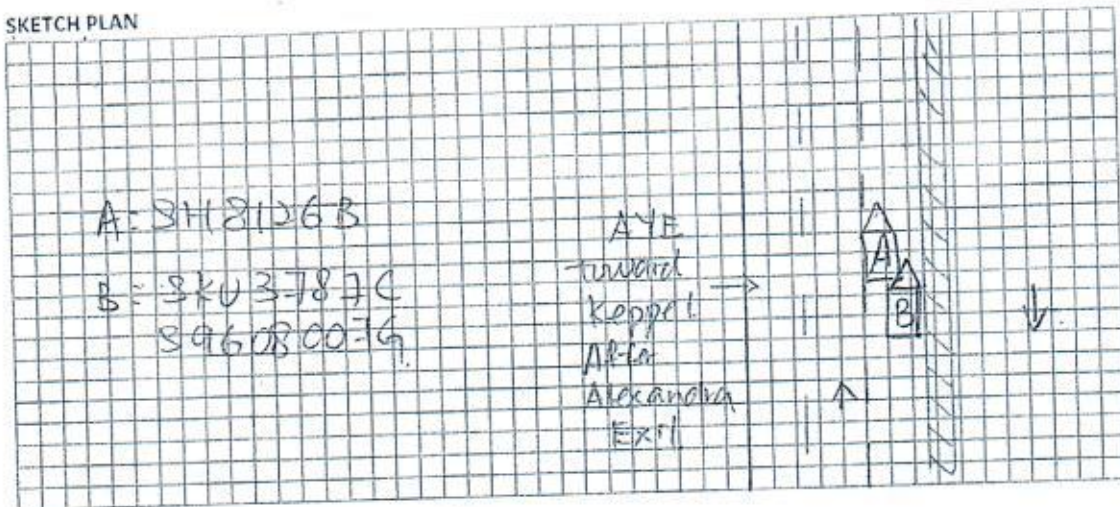 SKETCH PLAN
A: SH8126B
B: SKU3787C
S9608007G
AYE
toward
Keppel
After
Alexandra
Exit
A
B